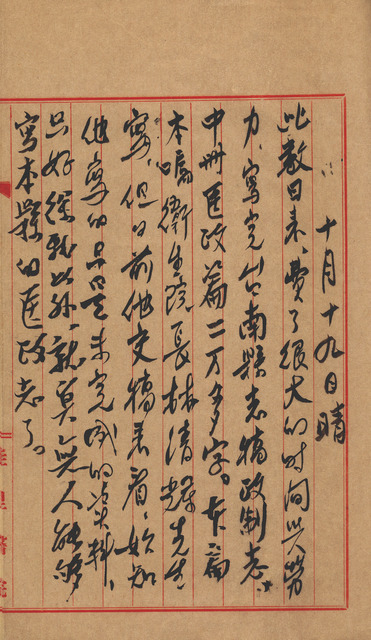 十月十九日晴
此数日来、费了很大的时间与劳
力、写完台南县志稿政制志
中册医政篇二万多字。本篇
本嘱卫生院长林清辉先生
写、但日前他交稿来看、始知
他写的是只是未完成的资料、
只好缓我以外、就莫无人能够
写本县的医政志了。